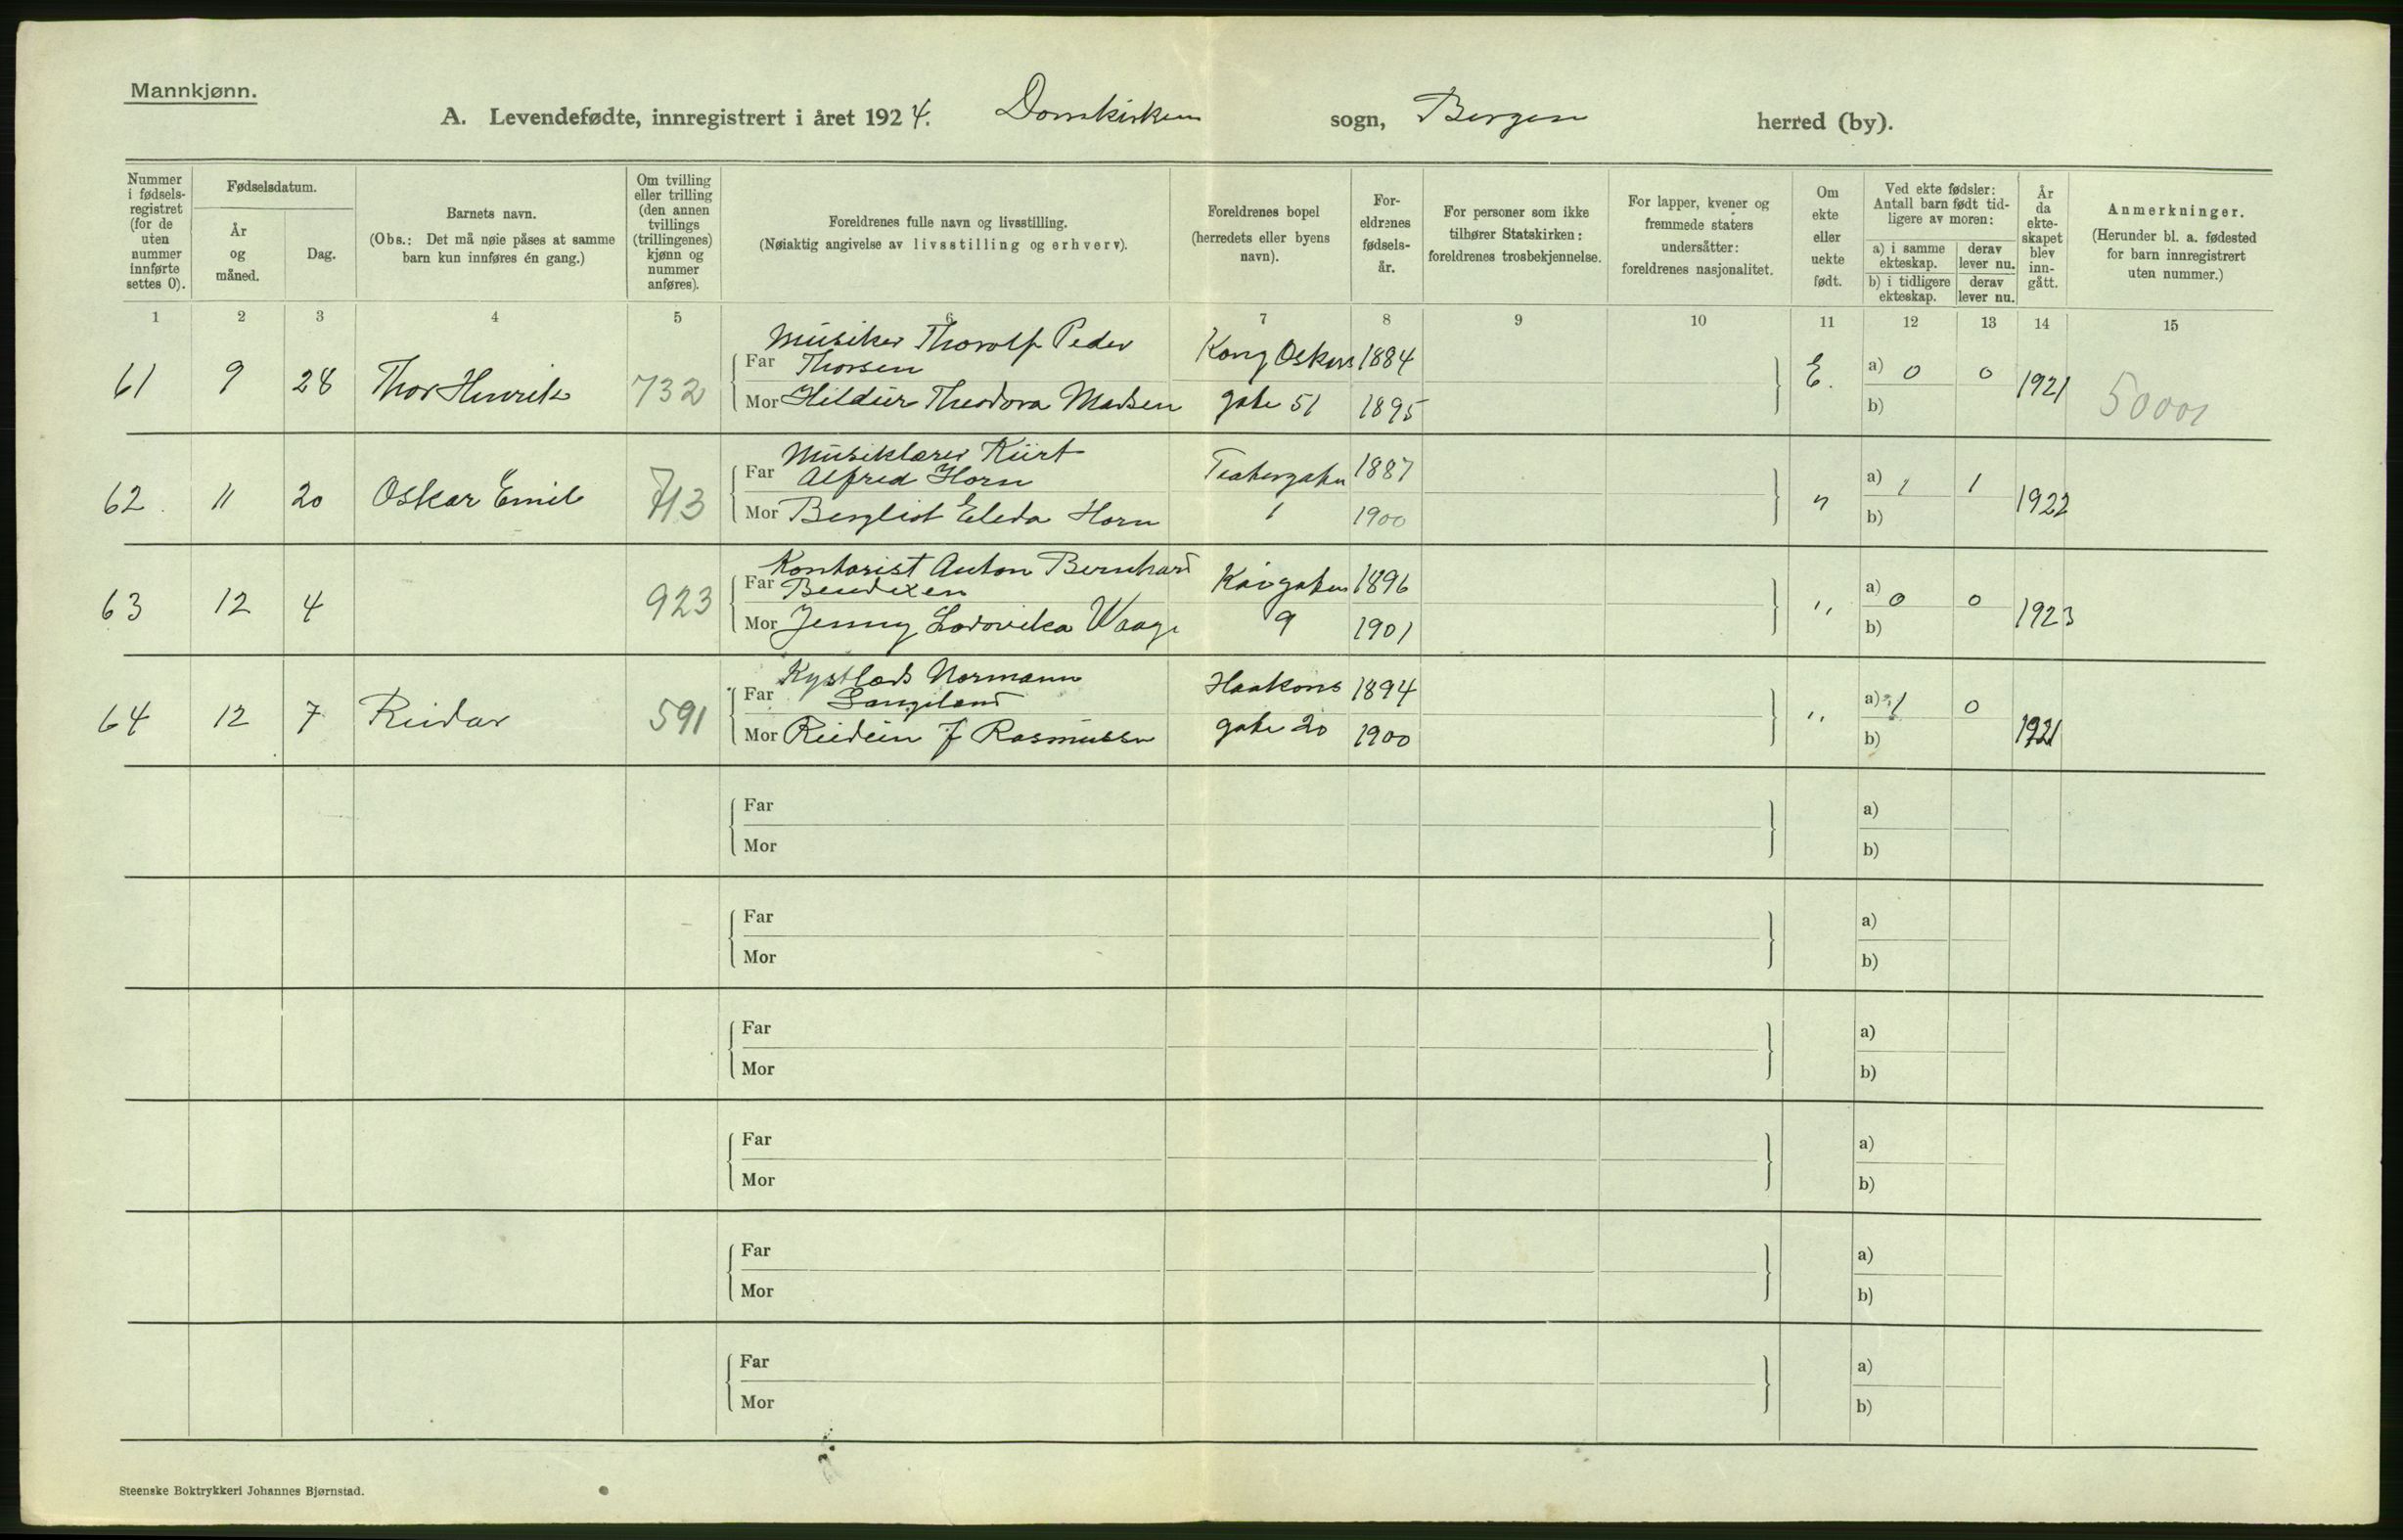 Mannkjønn.
A. Levendefødte, innregistrert i året 1924. Domkirken sogn, Bergen herred (by).
Nummer i fødsels-registret (for de uten nummer innførte settes 0).
Fødselsdatum.
År og måned.
Dag.
Barnets navn.
(Obs.: Det må nøie påses at samme barn kun innføres én gang.)
Om tvilling eller trilling (den annen tvillings (trillingenes) kjønn og nummer anføres).
Foreldrenes fulle navn og livsstilling.
(Nøiaktig angivelse av livsstilling og erhverv).
Foreldrenes bopel (herredets eller byens navn).
For-eldrenes fødsels-år.
For personer som ikke tilhører Statskirken: foreldrenes trosbekjennelse.
For lapper, kvener og fremmede staters undersåtter: foreldrenes nasjonalitet.
Om ekte eller uekte født.
Ved ekte fødsler: Antall barn født tid-ligere av moren:
a) i samme ekteskap.
derav lever nu.
b) i tidligere ekteskap.
derav lever nu.
År da ekte-skapet blev inn-gått.
Anmerkninger.
(Herunder bl. a. fødested for barn innregistrert uten nummer.)
1 2 3 4 5 6 7 8 9 10 11 12 13 14 15
61 9 28 Thor Henrik 732
Musiker Thorolf Peder
Far Thorsen Kong Oskars 1884
Mor Hildur Theodora Madsen gate 51 1895
E. a) 0 0 1921 50001
b)
62. 11 20 Oskar Emil 713
Musiklærer Kurt
Far Alfred Horn Teatergaten 1887
Mor Bergliot Eleda Horn 1 1900
" a) 1 1 1922
b)
63 12 4 923
Kontorist Anton Bernhard
Far Bendixen Kaigaten 1896
Mor Jenny Lodovika Waage 9 1901
" a) 0 0 1923
b)
64 12 7 Reidar 591
Kystlods Normann
Far Langeland Haakons 1894
Mor Reidun J Rasmussen gate 20 1900
" a) 1 0 1921
b)
Far a)
Mor b)
Far a)
Mor b)
Far a)
Mor b)
Far a)
Mor b)
Far a)
Mor b)
Far a)
Mor b)
Steenske Boktrykkeri Johannes Bjørnstad.